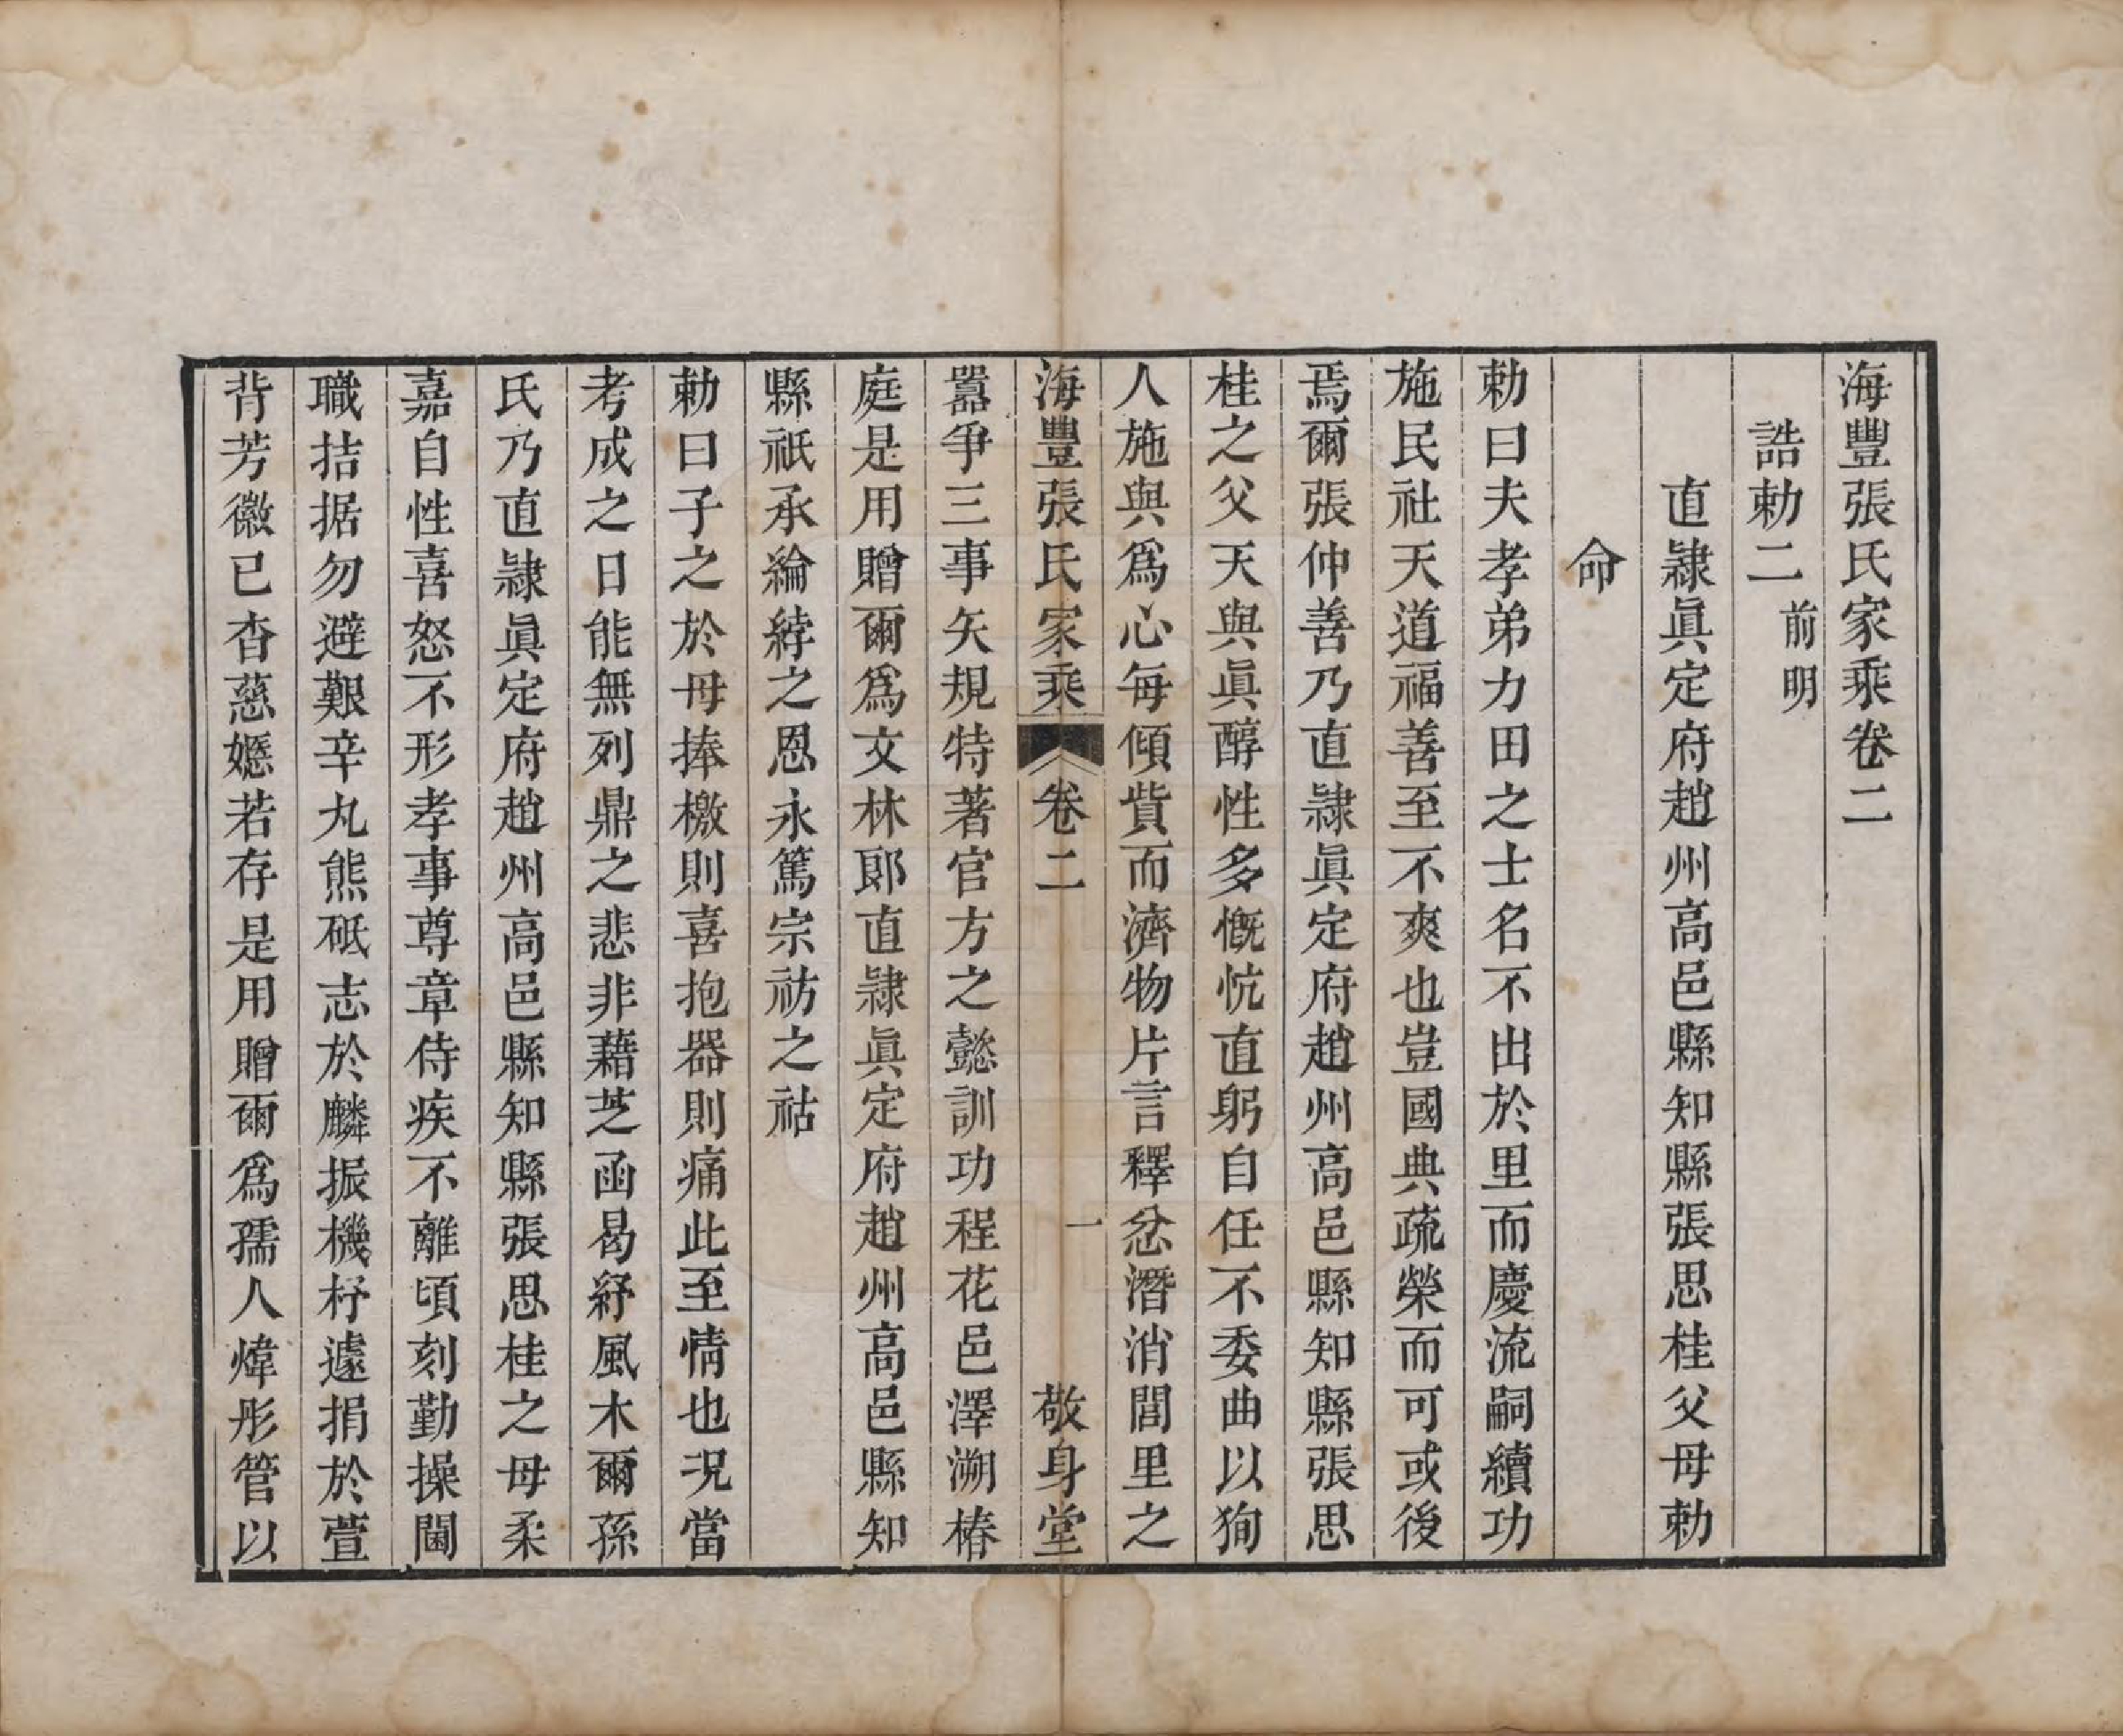 海豐張氏家乘卷二
誥勅二前明
直隸眞定府趙州高邑縣知縣張思桂父母勅
命
勅曰夫孝弟力田之士名不出於里而慶流嗣續功
施民社天道福善至不爽也豈國典疏榮而可或後
焉爾張仲善乃直隸眞定府趙州高邑縣知縣張思
桂之父天與眞醇性多慨忼直躬自任不委曲以狥
人施與爲心每傾貲而濟物片言釋忿潛消閭里之
海豐張氏家乘 卷二 一 敬身堂
嚚爭三事矢規特著官方之懿訓功程花邑澤溯椿
庭是用贈爾爲文林郎直隸眞定府趙州高邑縣知
縣祇承綸綍之恩永篤宗祊之祜
勅曰子之於母捧檄則喜抱器則痛此至情也況當
考成之日能無列鼎之悲非藉芝函曷紓風木爾孫
氏乃直隸眞定府趙州高邑縣知縣張思桂之母柔
嘉自性喜怒不形孝事尊章侍疾不離頃刻勤操閫
職拮据勿避艱辛丸熊砥志於麟振機杼遽捐於萱
背芳徽已杳慈嬺若存是用贈爾爲孺人煒彤管以